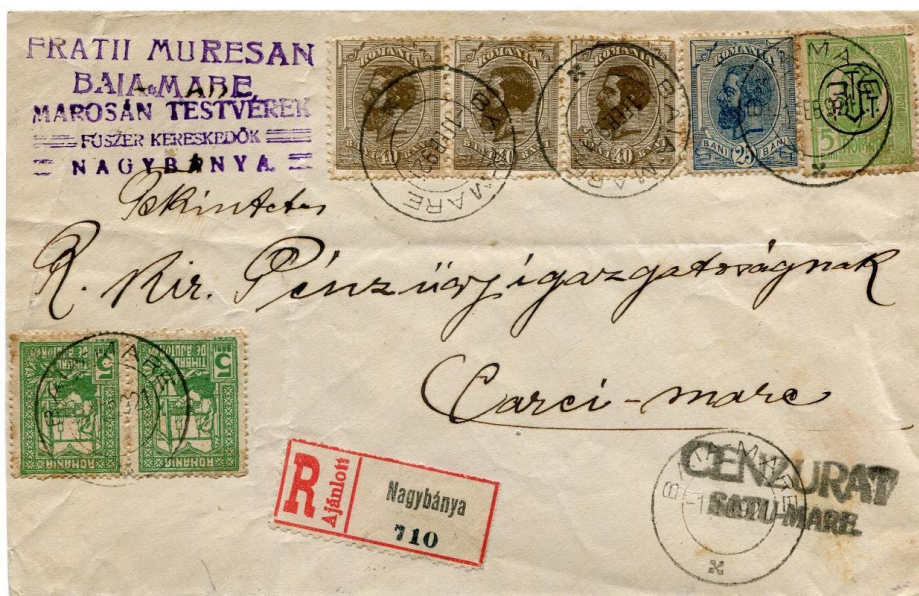 FRATII MURESAN
BAIA-MARE
MAROSÁN TESTVÉREK
FÜSZER KERESKEDÖK
NAGYBÁNYA
ROMANIA
BANI 40
ROMANIA
40
ROMANIA
BANI 40
ROMANIA
BANI 25 BANI
5
BAIA MARE
BAIA MARE
Tekintetes
R. Kir. Pénzügyigazgatóságnak
Carei-mare
5 BANI
TIMBRU DE AJUTOR
ROMANIA
5 BANI
TIMBRU DE AJUTOR
ROMANIA
R
Ajánlott
Nagybánya
710
CENZURAT
SATU-MARE.
BAIA MARE